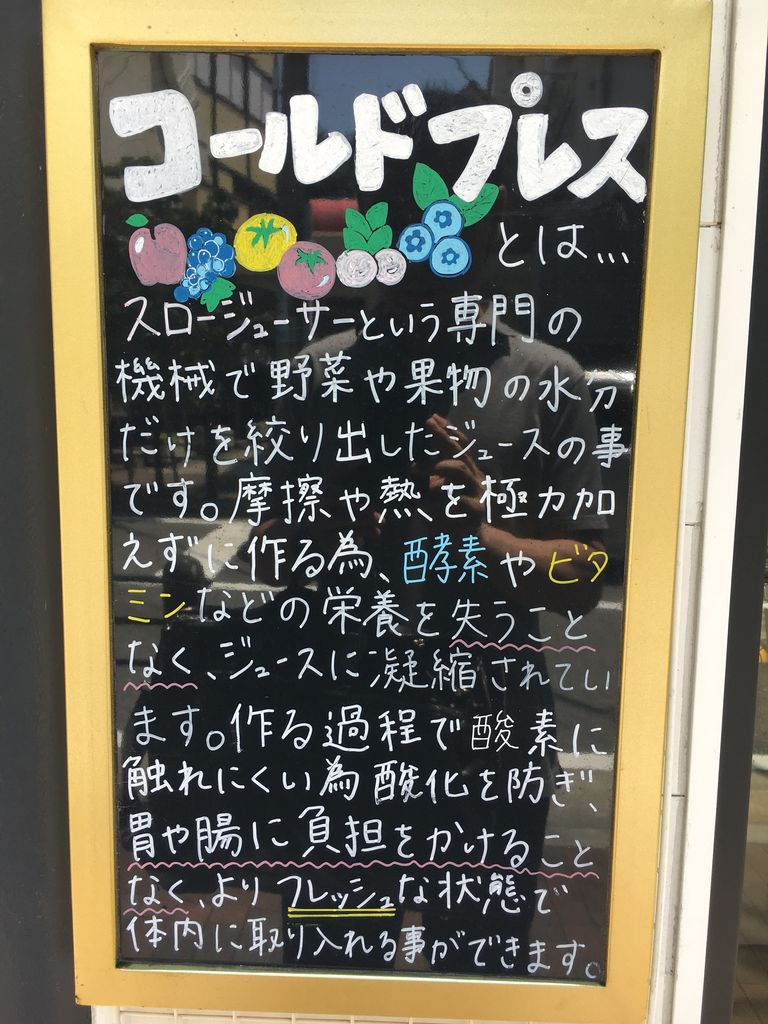 コールドプレス
とは...
スロージューサーという専門の
機械で野菜や果物の水分
だけを絞り出したジュースの事
です。摩擦や熱を極力加
えずに作る為、酵素やビタ
ミンなどの栄養を失うこと
なく、ジュースに凝縮されてい
ます。作る過程で酸素に
触れにくい為酸化を防ぎ、
胃や腸に負担をかけること
なく、よりフレッシュな状態で
体内に取り入れる事ができます。